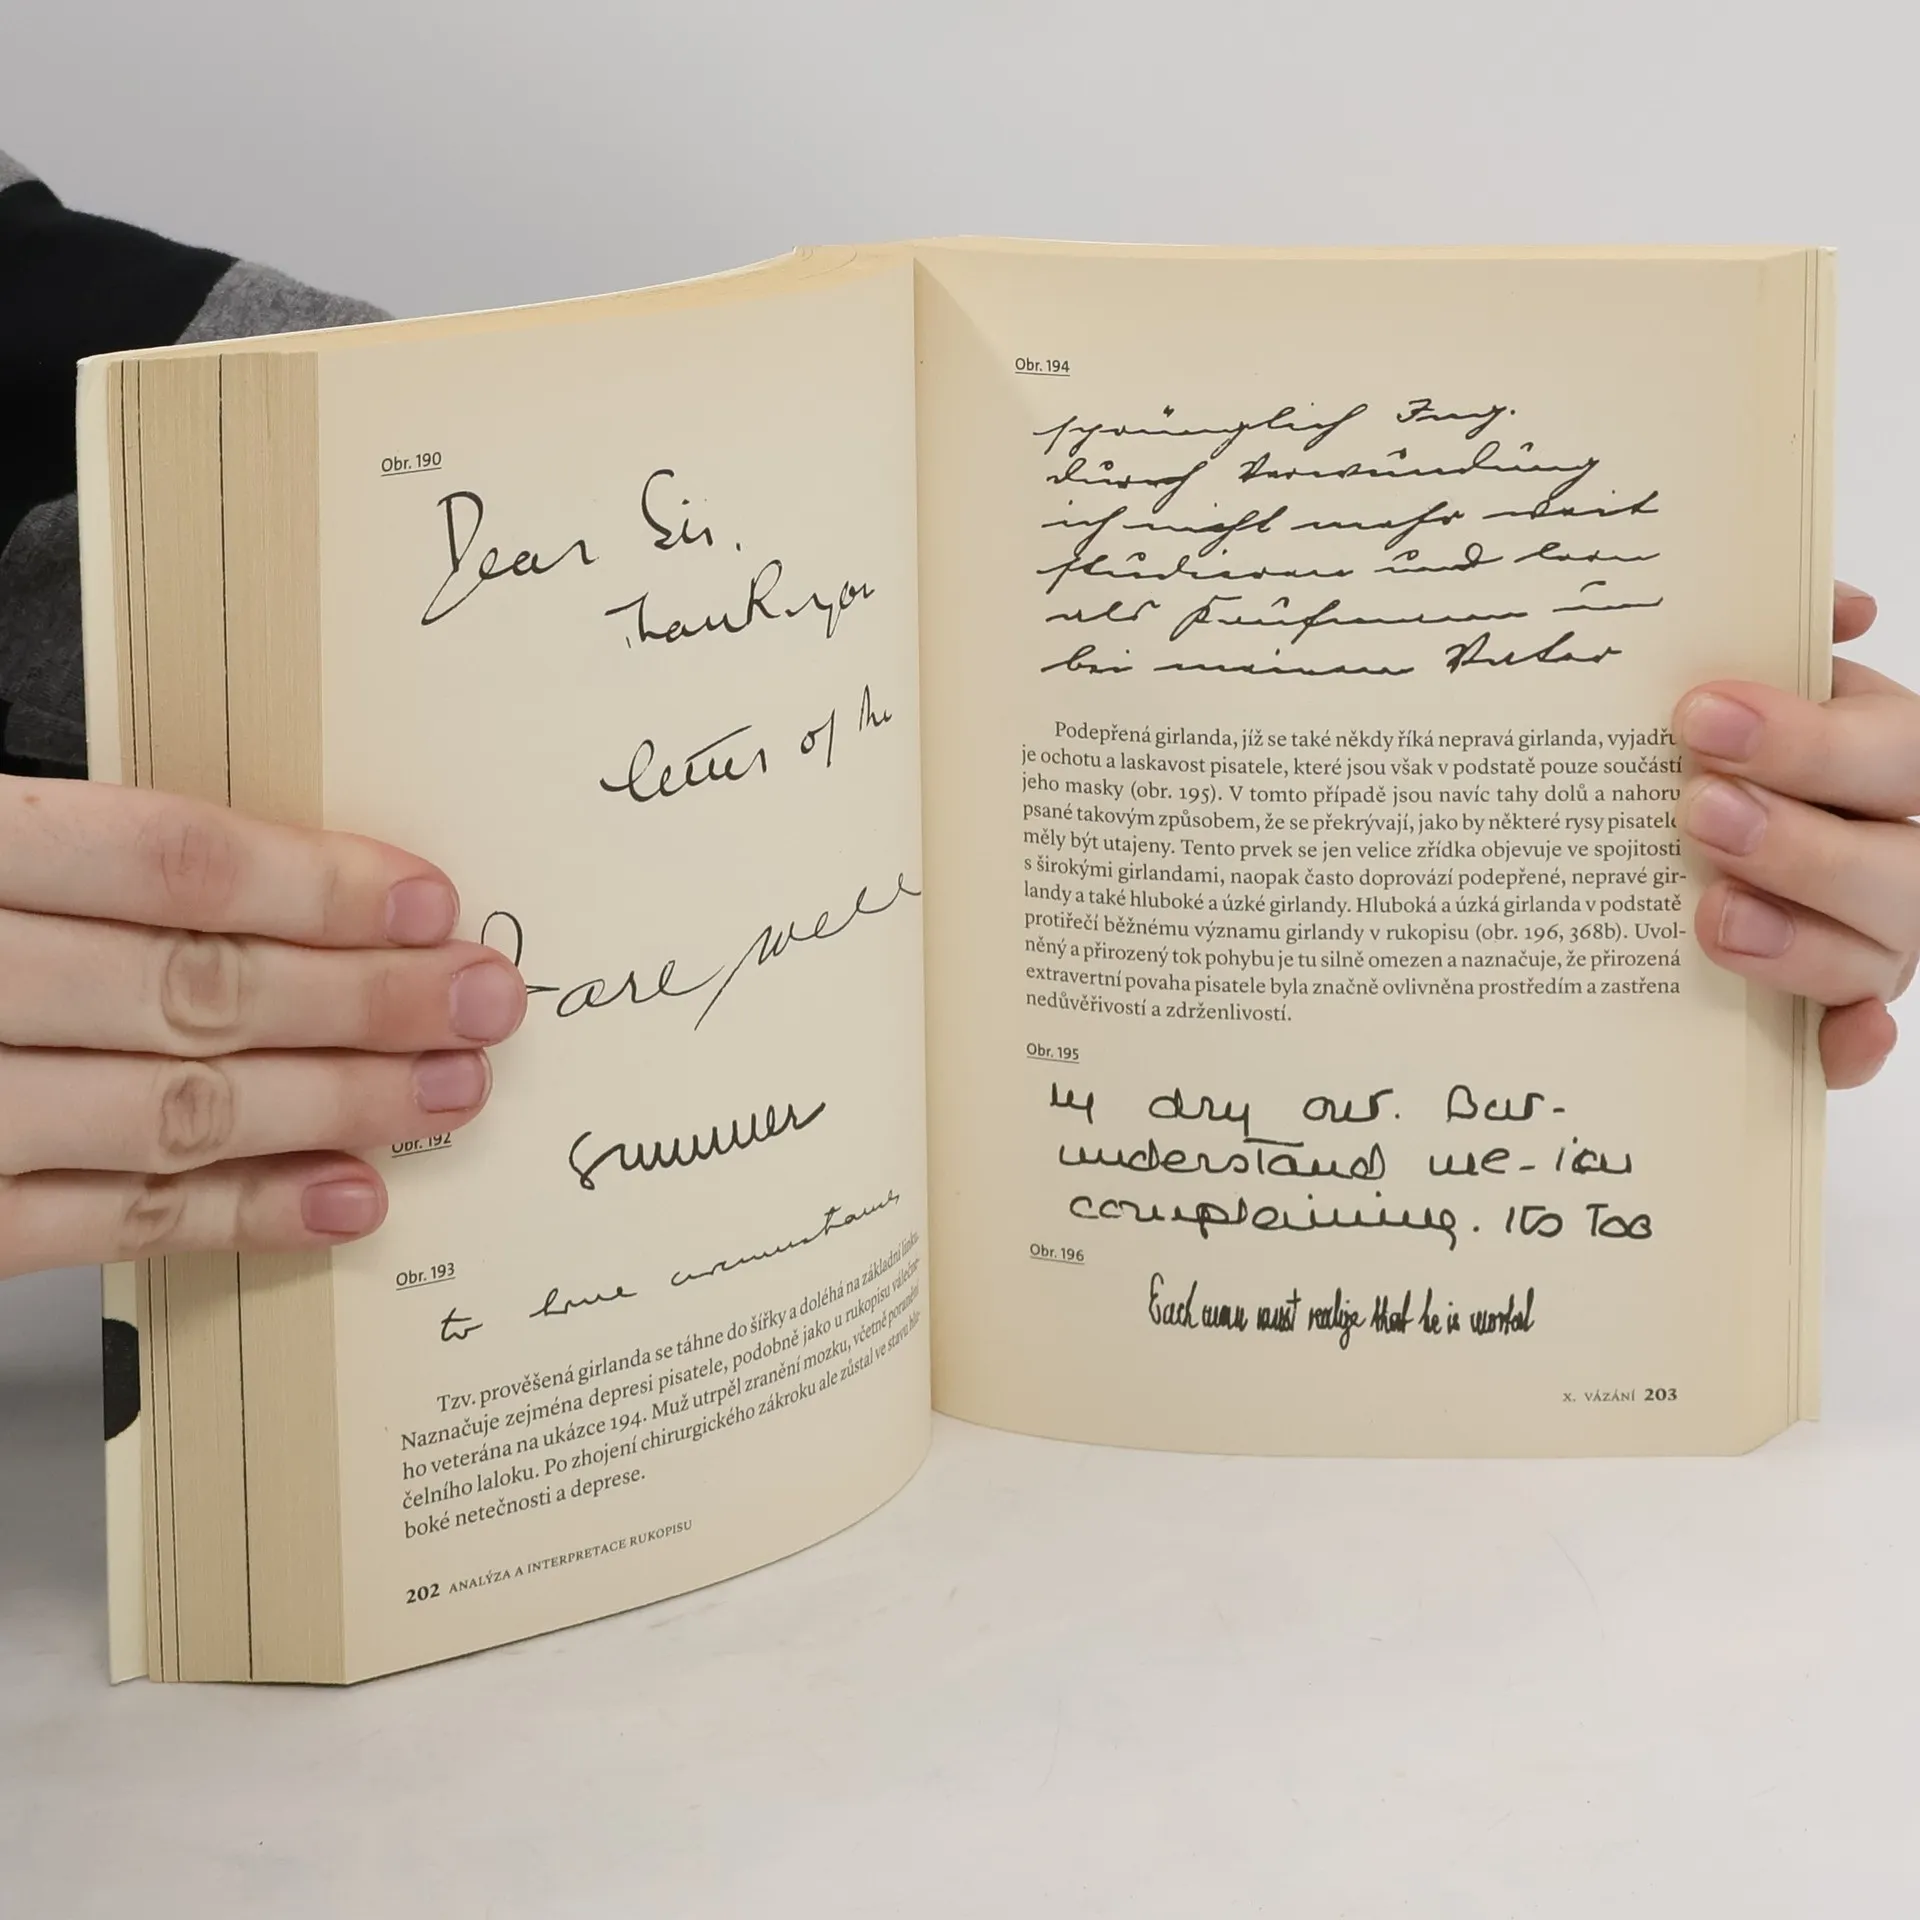 Obr. 190
Dear Sir,
Thank you
letter of the
Farewell
Obr. 192
summer
Obr. 193
to have circumstances
Tzv. prověšená girlanda se táhne do šířky a doléhá na základní linku.
Naznačuje zejména depresi pisatele, podobně jako u rukopisu válečné-
ho veterána na ukázce 194. Muž utrpěl zranění mozku, včetně poranění
čelního laloku. Po zhojení chirurgického zákroku ale zůstal ve stavu hlu-
boké netečnosti a deprese.
202 ANALÝZA A INTERPRETACE RUKOPISU
Obr. 194
sprünglich Ing.
durch Verwundung
ich nicht mehr weit
studieren und lern
als Kaufmann im
bei meinem Vater
Podepřená girlanda, jíž se také někdy říká nepravá girlanda, vyjadřu
je ochotu a laskavost pisatele, které jsou však v podstatě pouze součástí
jeho masky (obr. 195). V tomto případě jsou navíc tahy dolů a nahoru
psané takovým způsobem, že se překrývají, jako by některé rysy pisatele
měly být utajeny. Tento prvek se jen velice zřídka objevuje ve spojitosti
s širokými girlandami, naopak často doprovází podepřené, nepravé gir-
landy a také hluboké a úzké girlandy. Hluboká a úzká girlanda v podstatě
protiřečí běžnému významu girlandy v rukopisu (obr. 196, 368b). Uvol-
něný a přirozený tok pohybu je tu silně omezen a naznačuje, že přirozená
extravertní povaha pisatele byla značně ovlivněna prostředím a zastřena
nedůvěřivostí a zdrženlivostí.
Obr. 195
my dry our. Bar-
understand me - i am
complaining. Its Too
Obr. 196
Each man must realize that he is mortal
X. VÁZÁNÍ 203